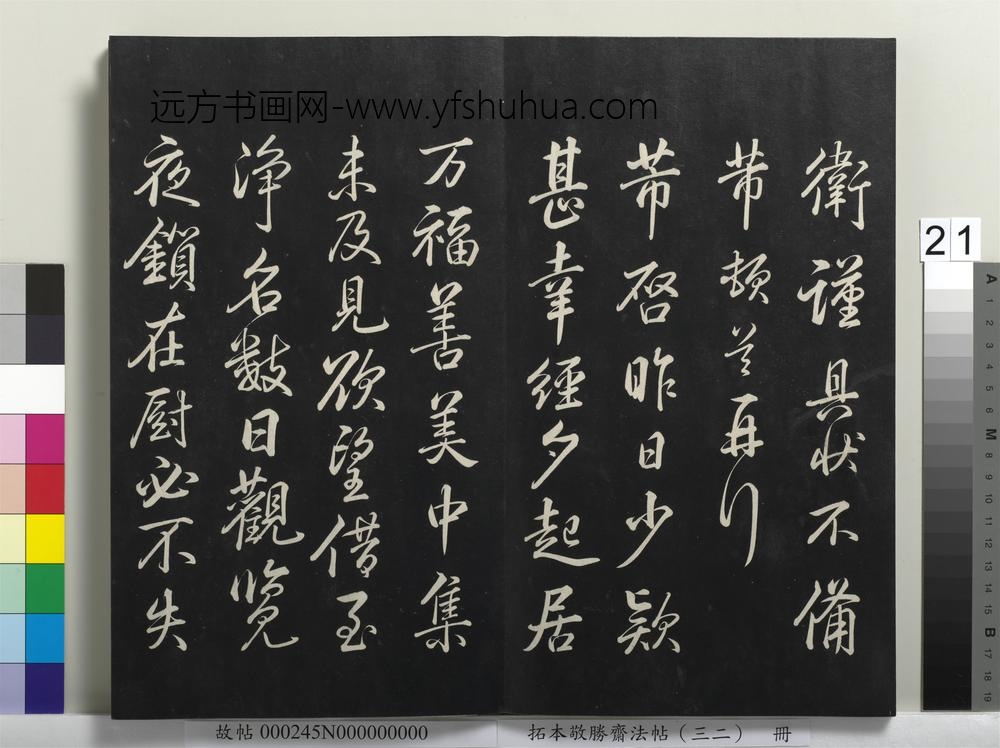 远方书画网-www.yfshuhua.com
衛謹具状不備
芾頓首再行
芾啓昨日少款
甚幸經夕起居
万福善美中集
未及見欲望借至
淨名數日觀覽
夜鎖在厨必不失
21
故帖 000245N000000000
拓本敬勝齋法帖（三二） 冊
A 1 2 3 4 5 6 M 8 9 10 11 12 13 14 15 B 17 18 19